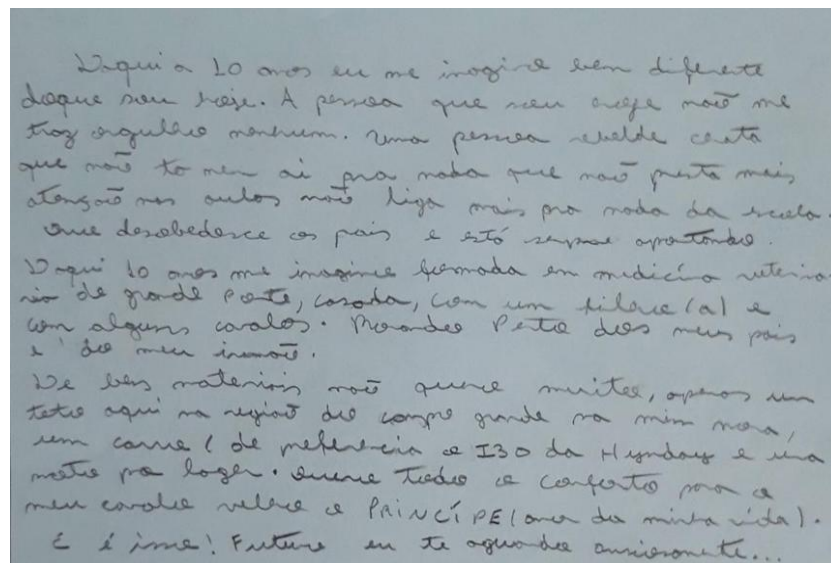 Daqui a 10 anos eu me imagino bem diferente
doque sou hoje. A pessoa que sou oreje naõ me
traz orgulho nenhum. Uma pessoa rebelde chata
que naõ to nem ai pra nada que naõ presta mais
atençaõ nas aulas naõ liga mais pra nada da escola.
Que desobedesce os pais e está sempre aprontando.
Daqui 10 anos me imagino formada em medicina veterina
ria de grande Porte, casada, com um filho (a) e
com alguns cavalos. Morando Perto dos meus pais
e do meu irmaõ.
De bens materiais naõ quero muito, apenas um
teto aqui na regiaõ do campo grande pa mim mora,
um carro (de preferencia o I30 da Hynday e uma
moto pa lazer. Quero todo o conforto para o
meu cavalo velho o PRINCÍPE (amor da minha vida).
E é isso! Futuro eu te aguardo ansiosamente...